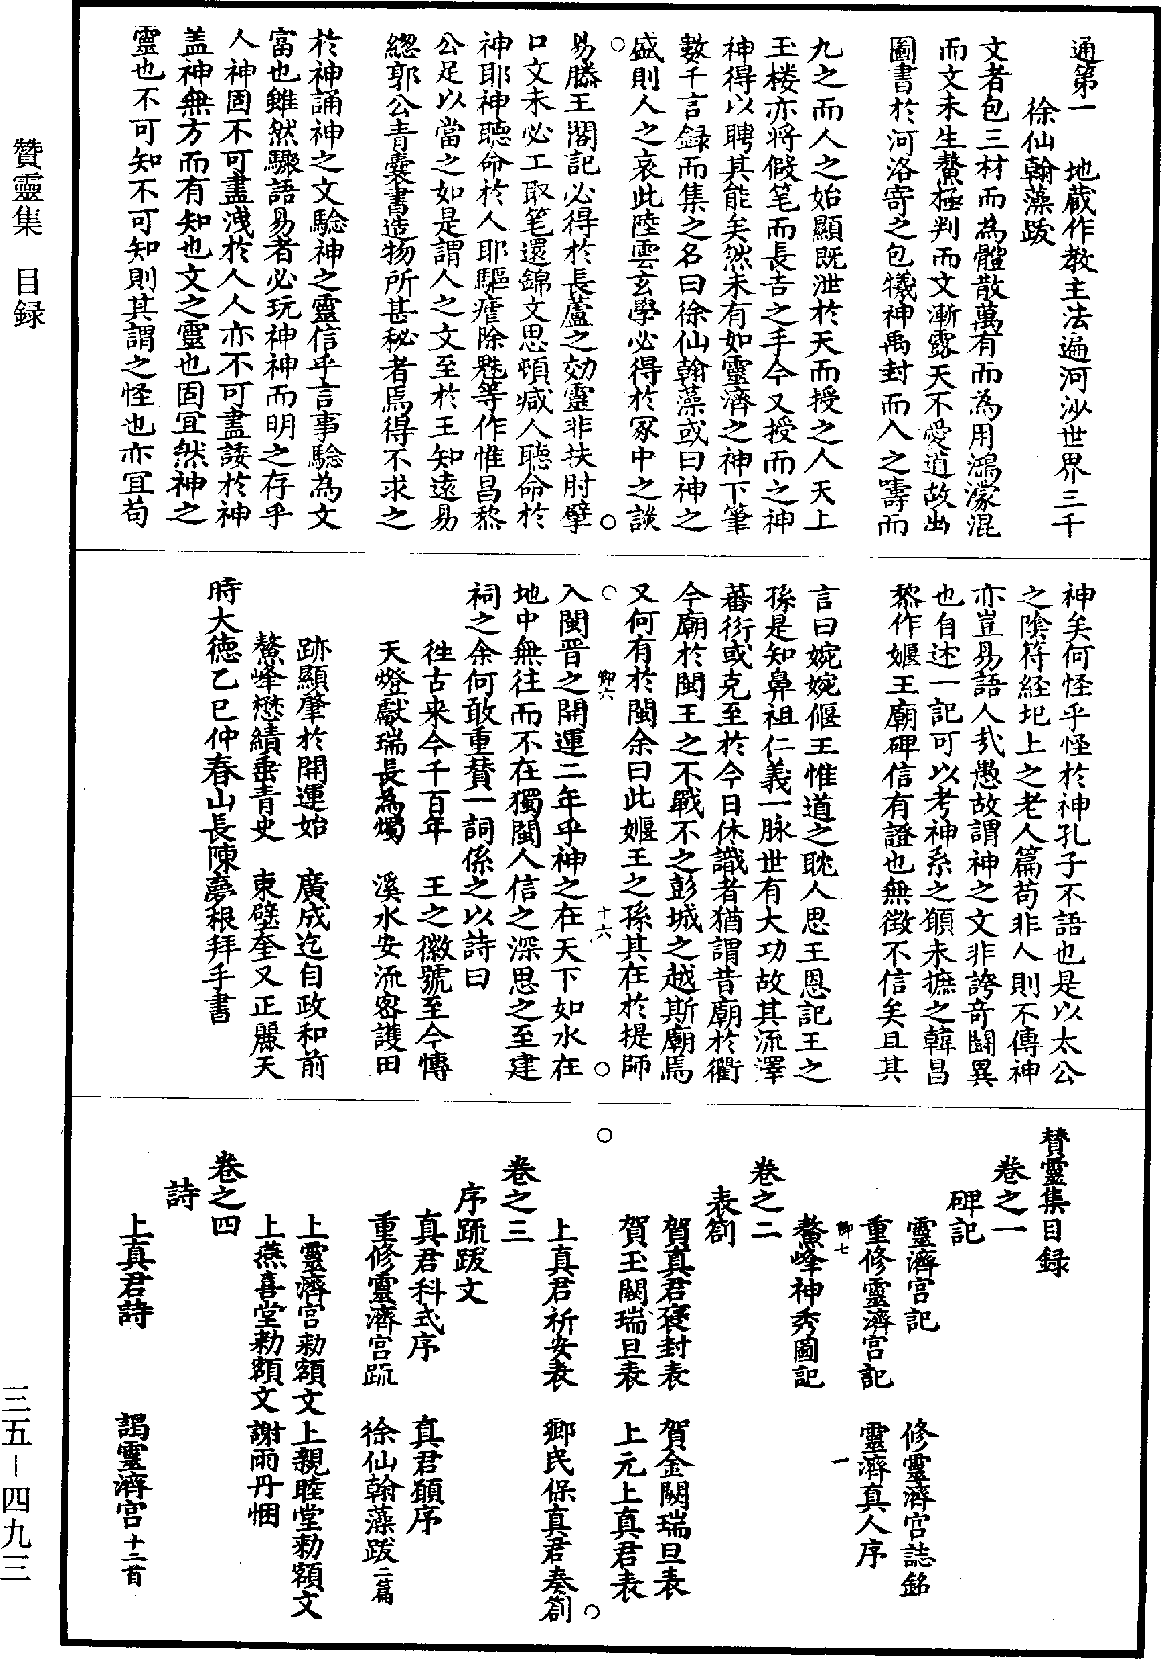 通第一　　地蔵作教主法遍河沙世界三千
徐仙翰藻跋
文者包三材而為體散萬有而為用鴻濛混
而文未生鰲極判而文漸露天不愛道故出
圖書於河洛寄之包犧神禹封而入之疇而
九之而人之始顯既泄於天而授之人天上
玉楼亦將假笔而長吉之手今又授而之神
神得以騁其能矣然未有如靈濟之神下筆
數千言録而集之名曰徐仙翰藻或曰神之
盛則人之衰此陸雲玄學必得於冢中之談
易滕王閣記必得於長蘆之効靈非扶肘擘
口文未必工取笔還錦文思頓臧人聽命於
神耶神聽命於人耶驅瘧除魃等作惟昌黎
公足以當之如是謂人之文至於王知遠易
緫郭公青囊書造物所甚秘者焉得不求之
於神誦神之文驗神之靈信乎言事驗為文
富也雖然驟語易者必玩神神而明之存乎
人神固不可盡洩於人人亦不可盡諉於神
盖神無方而有知也文之靈也固宜然神之
靈也不可知不可知則其謂之怪也亦宜苟
神矣何怪乎怪於神孔子不語也是以太公
之隂符経圯上之老人篇苟非人則不傳神
亦豈易語人㢤愚故謂神之文非誇竒鬪異
也自述一記可以考神系之顛末摭之韓昌
黎作嫗王廟碑信有證也無徴不信矣且其
言曰婉婉偃王惟道之耽人思王恩記王之
孫是知鼻祖仁義一脉世有大功故其流澤
蕃衍或克至於今日休識者猶謂昔廟於衢
今廟於閩王之不戰不之彭城之越斯廟焉
又何有於閩余曰此嫗王之孫其在於提師
入閩晋之開運二年乎神之在天下如水在
地中無往而不在獨閩人信之深思之至建
祠之余何敢重賛一詞係之以詩曰
徃古来今千百年　王之徽號至今傳
天燈獻瑞長為燭　溪水安流密護田
跡顯肇於開運始　廣成迄自政和前
鰲峰懋績垂青史　東壁奎又正麗天
時大徳乙巳仲春山長陳夢根拜手書
賛靈集目録
卷之一
碑記
靈濟宫記　修靈濟宫誌銘
重修靈濟宫記　靈濟真人序
鰲峰神秀圖記
卷之二
表劄
賀真君褒封表　賀金闕瑞旦表
賀玉闕瑞旦表　上元上真君表
上真君祈安表　鄉民保真君奏劄
卷之三
序䟽跋文
真君科式序　真君籲序
重修靈濟宫䟽　徐仙翰藻跋二篇
上靈濟宫勑額文上親睦堂勑額文
上燕喜堂勑額文謝雨丹悃
卷之四
詩
上真君詩　謁靈濟宫十二首
贊靈集　目録
三五－四九三